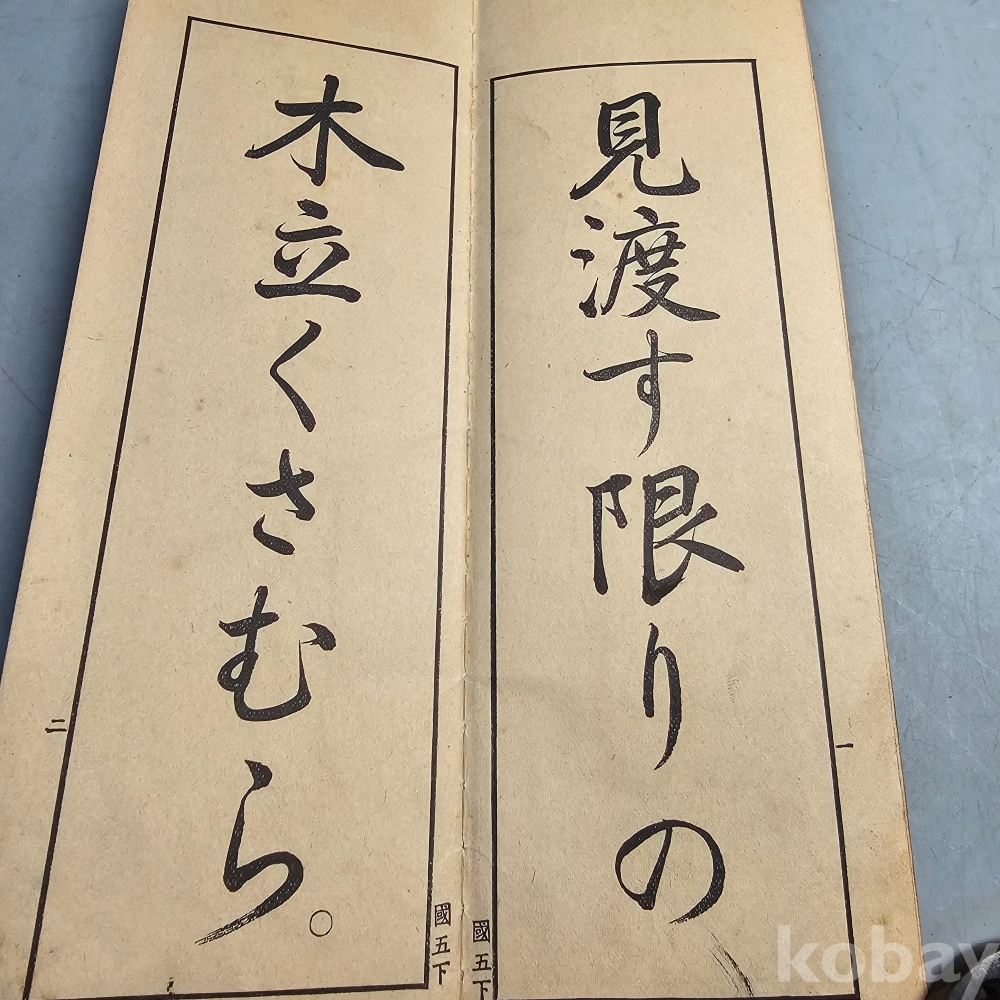 見渡す限りの
一
國五下
木立くさむら。
二
國五下
kobay